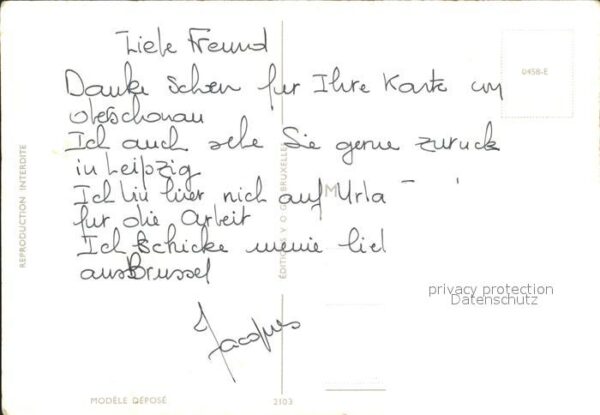 Liebe Freund
Danke Schön für Ihre Karte
oberschonau
Ich auch sehe Sie gerne zuruck
in Leipzig
Ich bin hier nich auf Urla
fur die arbeit
Ich schicke meine lie
aus Brussel
Jacques
0458-E
REPRODUCTION INTERDITE
ÉDITIONS BRUXELLES
M
privacy protection
Datenschutz
MODÈLE DÉPOSÉ
2103